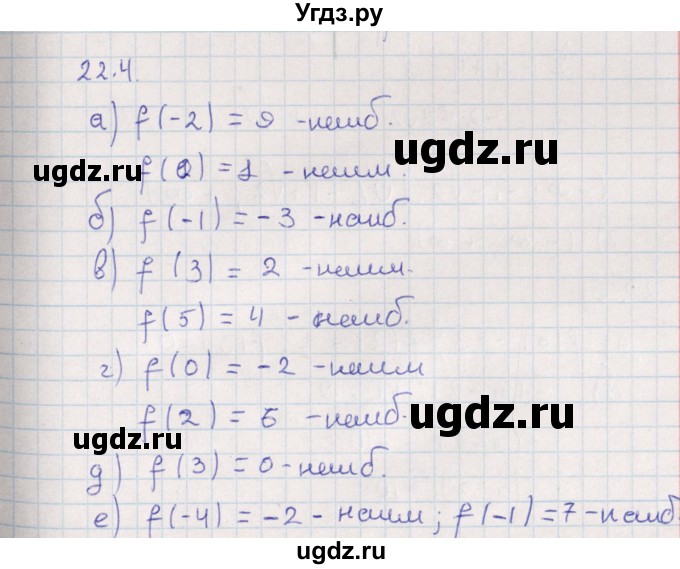 Угдз.ру
22.4.
а) f(-2) = 9 -наиб.
f(0) = 1 - наим.
б) f(-1) = -3 -наиб.
в) f(3) = 2 -наим.
f(5) = 4 - наиб.
г) f(0) = -2 -наим
f(2) = 6 -наиб.
д) f(3) = 0 -наиб.
е) f(-4) = -2 - наим; f(-1) = 7 -наиб.
ugdz.ru
ugdz.ru
ugdz.ru
ugdz.ru
ugdz.ru
ugdz.ru
ugdz.ru